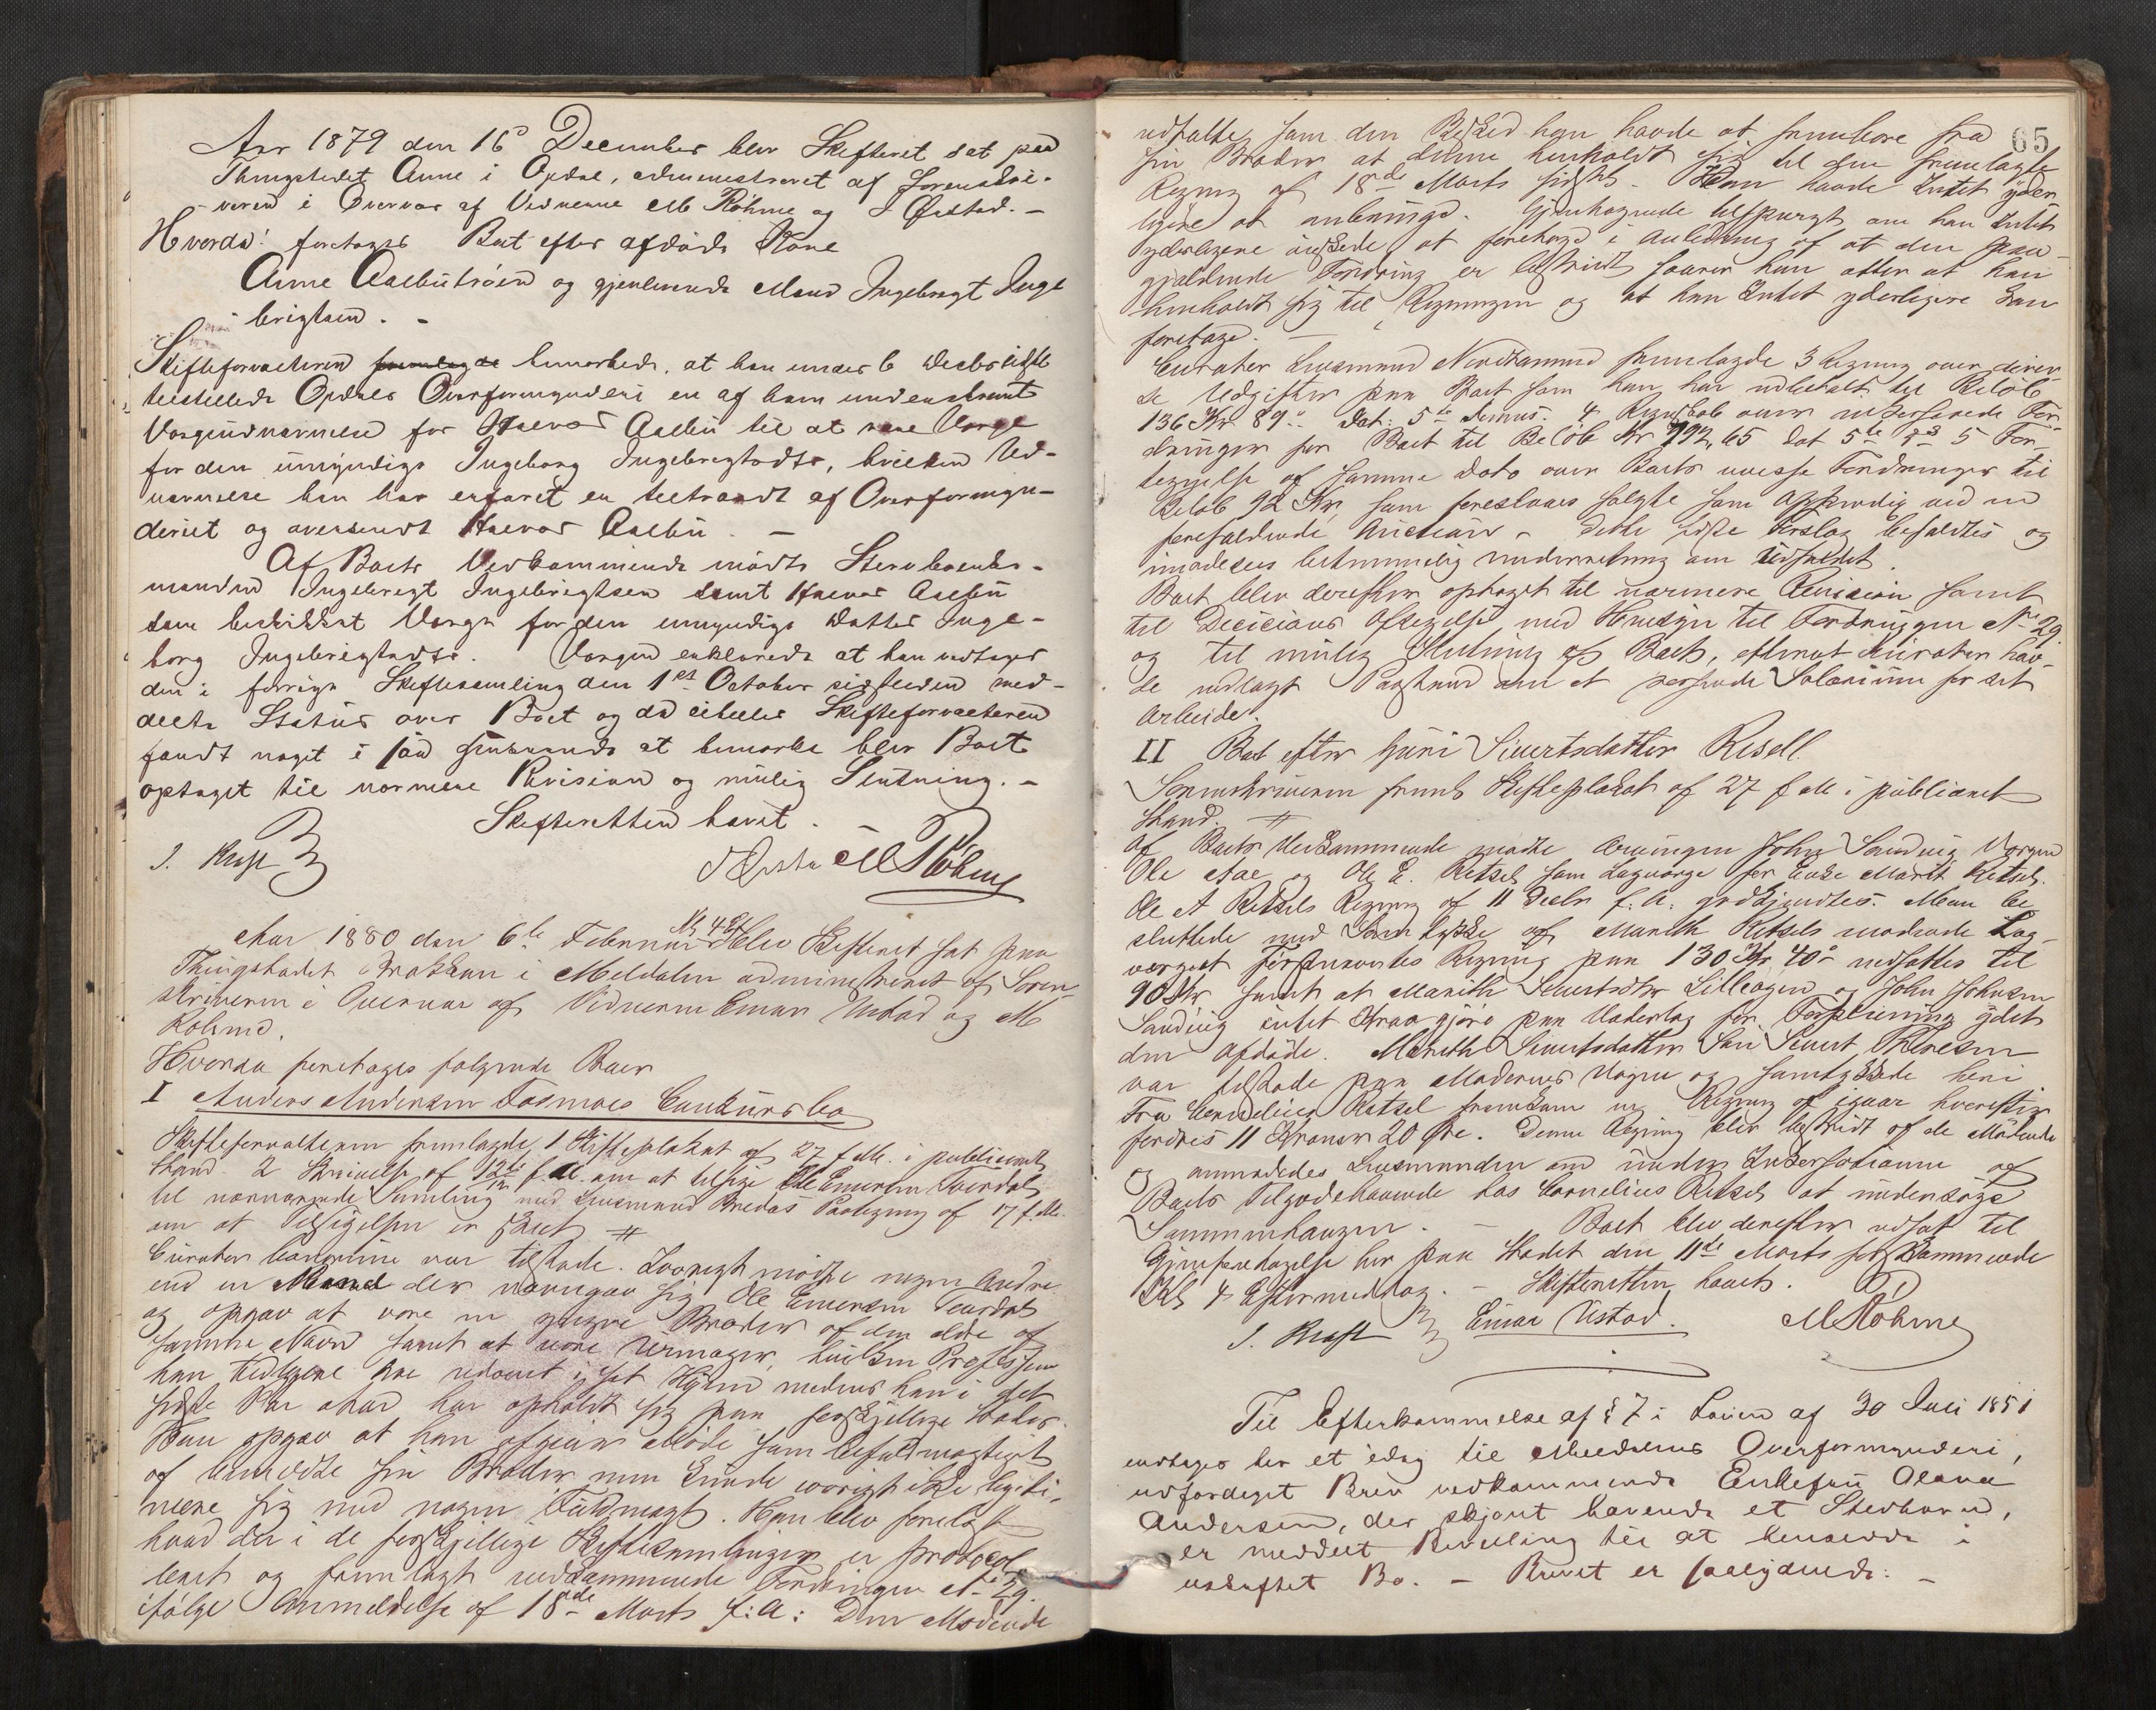 Aar 1879 den 16de December blev Skifteret sat paa
Thingstedet Aune i Opdal, administreret af Sorenskri-
veren i Overvær af Vidnerne M Röhme og I Ørstad. -
Hvorda: foretoges Boet efter afdøde Kone
Anne Aalbutrøen og gjenlevende Mand Ingebrigt Inge
brigtsen. -
Skifteforvalteren fremlagde bemærkede, at han under 6 Decbr sidstl
tilstillede Opdals Overformynderi en af ham underskrevet
Værgeudnævnelse for Halvor Aalbu til at være Værge
for den umyndige Ingeborg Ingebrigtsdtr, hvilken Ud-
nævnelse han har erfaret er tiltraadt af Overformyn-
deriet og oversendt Halvor Aalbu. -
Af Boets Vedkommende mødte Stervboenke-
manden Ingebrigt Ingebrigtsen samt Halvor Aalbu
som beskikket Værge for den umyndige Datter Inge-
borg Ingebrigtsdtr. Værgen erklærede at han vedtager
den i forrige Skiftesamling den 1ste October sidstleden med-
deelte Status over Boet og da ei heller Skifteforvalteren
fandt noget i saa Henseende at bemærke blev Boet
optaget til nærmere Revision og mulig Slutning. -
Skifteretten hævet.
I. Kraft
M Röhme
Aar 1880 den 6te Februar Kl 4 Eft blev Skifteret sat paa
Thingstedet Krokham i Meldalen administreret af Soren-
skriveren i Overvær af Vidnerne Einar Ustad og M
Rohme.
Hvorda foretoges følgende Boer
I Anders Andersen Fosmoes Concursbo
Skifteforvalteren fremlagde 1 Skifteplakat af 27 f M. i publiceret
Stand. 2 Skrivelse af 12te f. M. om at tilsige Ole Einersen
til nærværende Samling med Lensmand Bredas Paategning af 17 f. M.
om at Tilsigelsen er skeet
Curator bonorum var tilstede. Iøvrigt mødte ingen Andre
end en Mand der navngav sig Ole Einersen
og opgav at være en yngre Broder af den ældre af
samme Navn samt at være Urmager, hvilken Profession
han tidligere har udøvet i sit Hjem medens han i det
sidste Par Aar har opholdt sig paa forskjellige Steder.
Han opgav at han afgiver Møde som befuldmægtiget
af bemeldte sin Broder men kunde iøvrigt ikke legiti-
mere sig med nogen Fuldmagt. Han blev forelagt
hvad der i de forskjellige Skiftesamlinger er protocol
leret og fremlagt vedkommende Fordringen No 29.
ifølge Anmeldelse af 18de Marts f: A: Den Mødende
65
udtalte som den Besked han havde at frembære fra
sin Broder at denne henholdt sig til den fremlagte
Regning af 18de Marts sidstl. Han havde Intet yder
ligere at anbringe. Gjentagende tilspurgt om han Intet
yderligere ønskede at foretage i Anledning af at den paa-
gjældende Fordring er bestridt svarer han atter at han
henholdt sig til Regningen og at han Intet yderligere kan
foretage. -
Curator Lensmand Nordtømme fremlagde 3 Regning over diver
se Udgifter paa Boet som han har udbetalt til Beløb
136 Kr 89 ø. Dat: 5te dennes. 4 Regnskab over indkomne For
dringer for Boet til Beløb Kr 992,65 dat 5te ds 5 For-
tegnelse af samme Dato over Boets uvisse Fordringer til
Beløb 92 Kr, som foreslaaes solgte som ved en
forefaldende Auction - Dette sidste Forslag befaldtes og
imødesees betimmelig Underretning om Udfaldet.
Boet blev derefter optaget til nærmere Revision samt
til Decisions Afsigelse med Hensyn til Fordringen No 29
og til mulig Slutning af Boet, efterat Curator hav-
de nedlagt Paastand om et passende Salarium for sit
Arbeide.
II Boet efter Guri Sivertsdatter Risell.
Sorenskriveren freml Skifteplakat af 27 f M i publiceret
Stand.
Af Boets Vedkommende mødte Arvingen John Sanduig Værgen
Ole Aae og Ole E. Retsel som Lagværge for Enke Marit Retsel.
Ole A Retsels Regning af 11 Decbr f. A. godkjendtes. Man be
sluttede med Samtykke af Marith Retsels mødende Lag-
værge at Regning paa 130 Kr 40 ø nedsattes til
90 Kr samt at Marith Sivertsdtr Lilleøgen og John Johnsen
Sanduig intet Krav gjøre paa Vederlag for Forpleining ydet
den Afdøde. Marith Sivertsdatters Søn Sivert Thoresen
var tilstede paa Moderens Vegne og samtykkede heri
Fra Cornelius Retsel fremkom en Regning af igaar hvorefter
fordres 11 Kroner 20 Øre. Denne Regning blev bestridt af de Mødende
og anmodedes Lensmanden om under Inkassationen af
Boets Tilgodehavende hos Cornelius Retsel at undersøge
Sammenhængen. - Boet blev derefter udsat til
Gjenforetagelse her paa Stedet den 11te Marts førstkommende
Kl 4 Eftermiddag. - Skifteretten hævet.
I. Kraft Einar Ustad. M Röhme
Til Efterkommelse af § 7 i Loven af 30 Juli 1851
indtages her et idag til Meldalens Overformynderi,
udfærdiget Brev vedkommende Enkefru Olava
Andersen, der skjønt havende et Stedbarn,
er meddelt Bevilling til at hensidde i
uskiftet Bo. - Brevet er saalydende: -